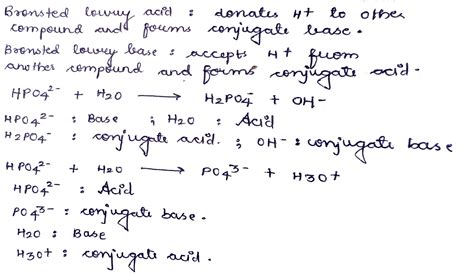 Bronsted lowry acid : donates H+ to other
compound and forms conjugate base.
Bronsted lowry base : accepts H+ from
another compound and forms conjugate acid.
HPO4²⁻ + H2O ⟶ H2PO4⁻ + OH⁻
HPO4²⁻ : Base ; H2O : Acid
H2PO4⁻ : conjugate acid. ; OH⁻ : conjugate base
HPO4²⁻ + H2O ⟶ PO4³⁻ + H3O+
HPO4²⁻ : Acid
PO4³⁻ : conjugate base.
H2O : Base
H3O+ : conjugate acid.